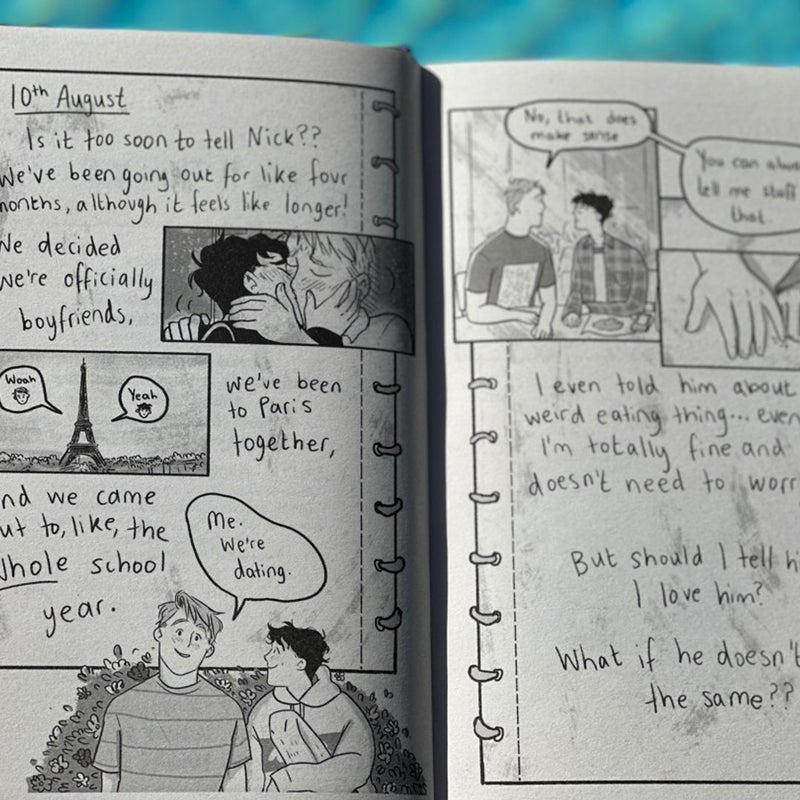 10th August
Is it too soon to tell Nick??
We've been going out for like four
months, although it feels like longer!
We decided
we're officially
boyfriends,
Woah
Yeah
we've been
to Paris
together,
and we came
out to, like, the
whole school
year.
Me.
We're
dating.
No, that does
make sense
You can always
tell me stuff
that.
I even told him about
weird eating thing... even
I'm totally fine and
doesn't need to worr
But should I tell hi
I love him?
What if he doesn't
the same??